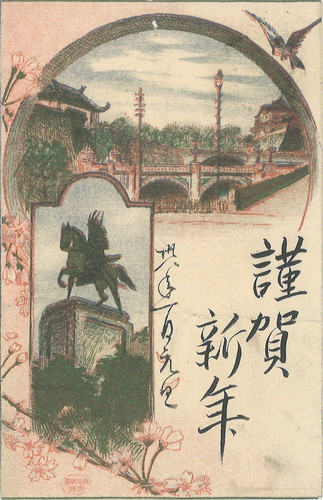 謹賀
新年
卅八年一月元旦